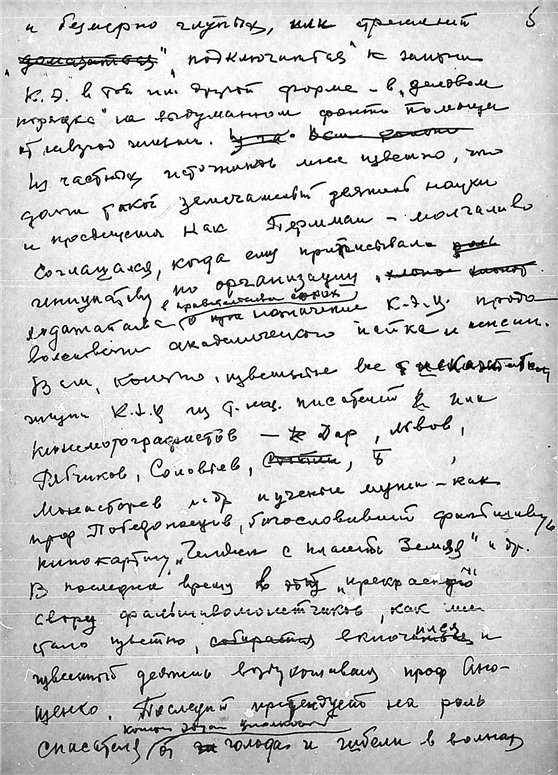 5
и безмерно глупых, или стремлений
"подключиться" к жизни
К.Э. в той или другой форме – в "деловом
порядке" на выдуманном фронте помощи
от нужд
Из частных источников мне известно, что
даже такой замечательный деятель науки
и просвещения как Перельман – молчаливо
соглашался, когда ему приписывали роль
инициативы по организации
ходатайства о назначении К.Э.Ц. продо-
вольствия академического пайка и пенсии.
Вам, конечно, известны все искажатели
жизни К.Э.Ц из т. наз. писателей или
кинематографистов – Дар, Львов,
Рябчиков, Соловьев,
Монастырев и др ученые мужи – как
проф Победоносцев, благословивший фальшивую
кинокартину "Человек с планеты Земля" и др.
В последнее время в "прекрасную"
свору фальшивомонетчиков, как мне
стало известно, включился и
известный деятель воздухоплавания проф Ано-
щенко. Последний претендует на роль
спасателя от голода и гибели в волнах